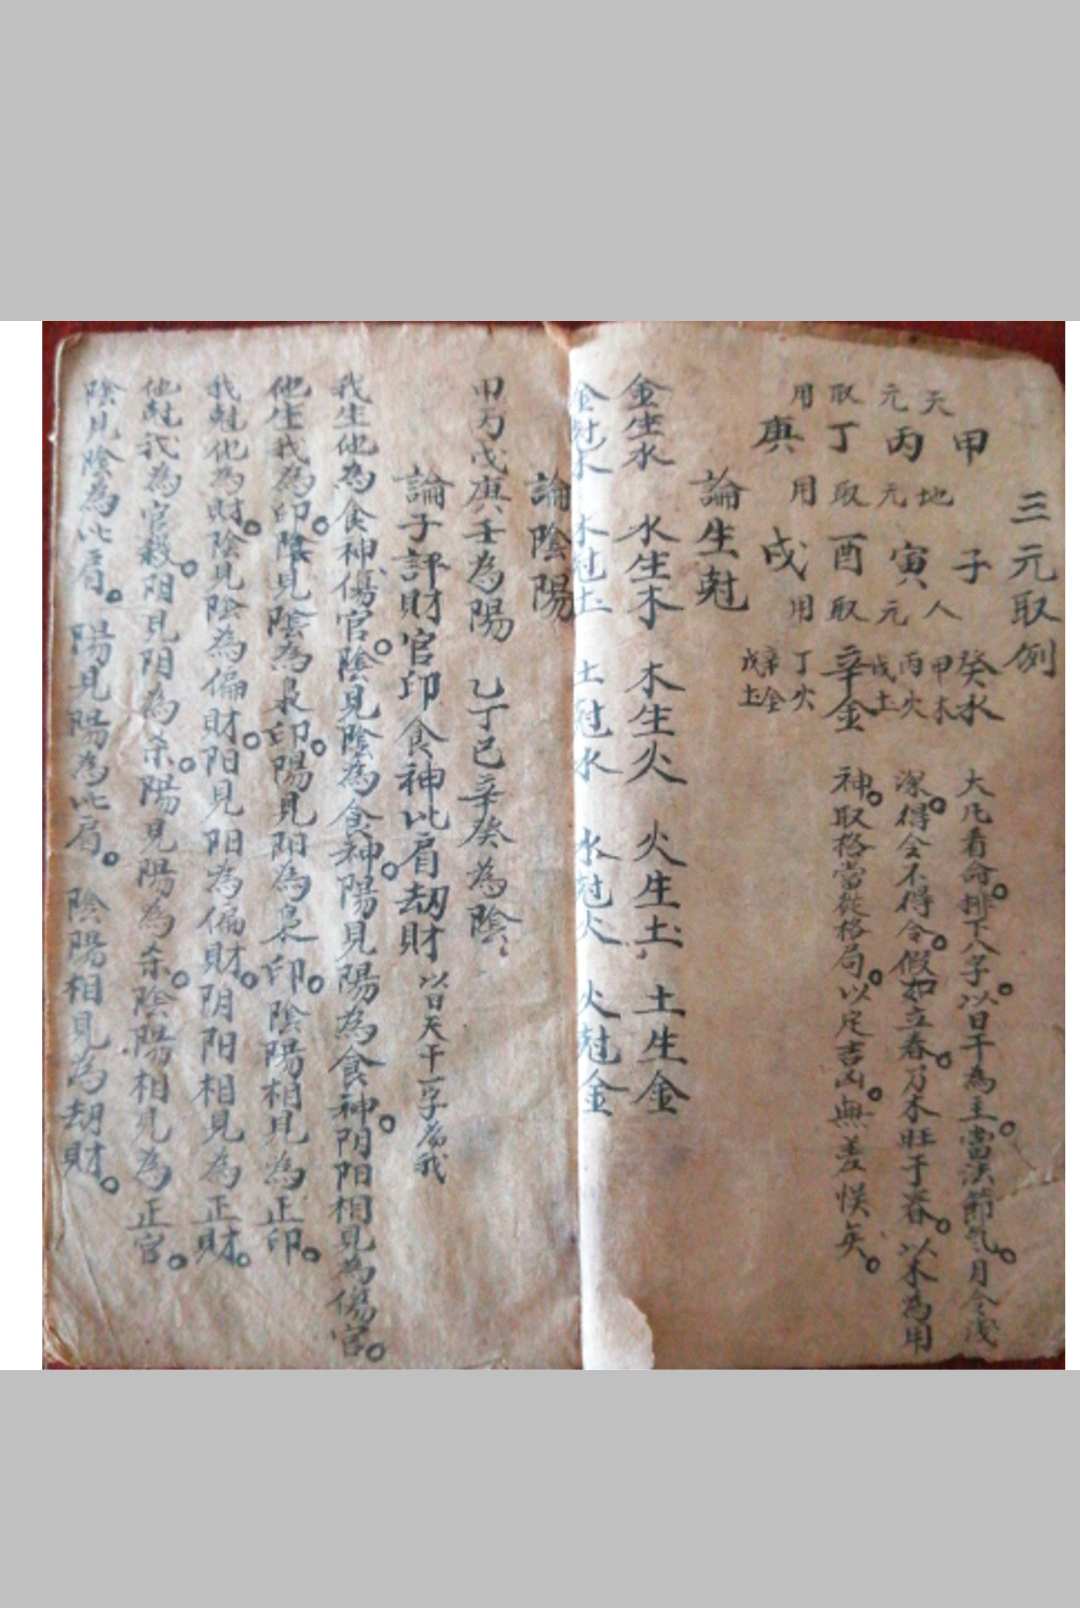 三元取例
甲 子 癸水
天元 地元 人元
丙 寅 甲木 丙火 戊土
取 取 取
丁 酉 辛金
用 用 用
庚 戌 丁火 辛金 戊土
大凡看命。排下八字。以日干為主。當決節氣。月令浅
深。得令不得令。假如立春。万木旺于春。以木為用
神。取格當從格局。以定吉凶。無差悮矣。
論生尅
金生水 水生木 木生火 火生土 土生金
金尅木 木尅土 土尅水 水尅火 火尅金
論陰陽
甲丙戊庚壬為陽 乙丁己辛癸為陰
論子評財官印食神比肩劫財 以日天干一字為我
我生他為食神傷官。陰見陰為食神。陽見陽為食神。阴阳相見為傷官。
他生我為印。陰見陰為梟印。陽見阳為梟印。陰陽相見為正印。
我尅他為財。陰見陰為偏財。阳見阳為偏財。阴阳相見為正財。
他尅我為官殺。阴見阴為杀。陽見陽為杀。陰陽相見為正官。
陰見陰為比肩。陽見陽為比肩。陰陽相見為劫財。